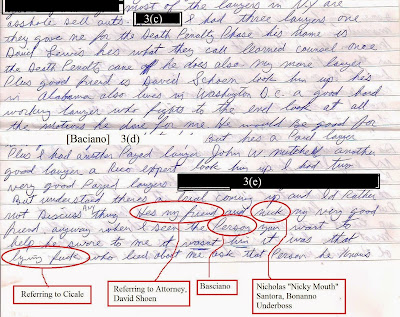 most of the lawyers in N.Y are
asshole sell outs 3(e) I had three lawyers one
they give me for the Death Penalty Phase his name is
David his what they call learned counsel once
the Death Penalty came off he does also my more lawyer
Plus good friend is David Schoen look him up he's
in Alabama also lives in Washington D.C. a good hard
working lawyer who fights to the end look at all
the motions he done for me He would be good for
[Baciano] 3(d) But he's a Paid lawyer
Plus I had another Payed lawyer John W mitchell another
good lawyer a Rico expert look him up I had two
very good Payed lawyers 3(e)
But understand there's a trial coming up and I'd Rather
not Discuss any thing He's my friend and Nick my very good
friend anyway when I see the Person you want to
help he swore to me it wasnt him it was that
lying fuck who lied about me ask that Person he knows
Referring to Cicale
Referring to Attorney,
David Shoen
Basciano
Nicholas "Nicky Mouth"
Santora, Bonanno
Underboss